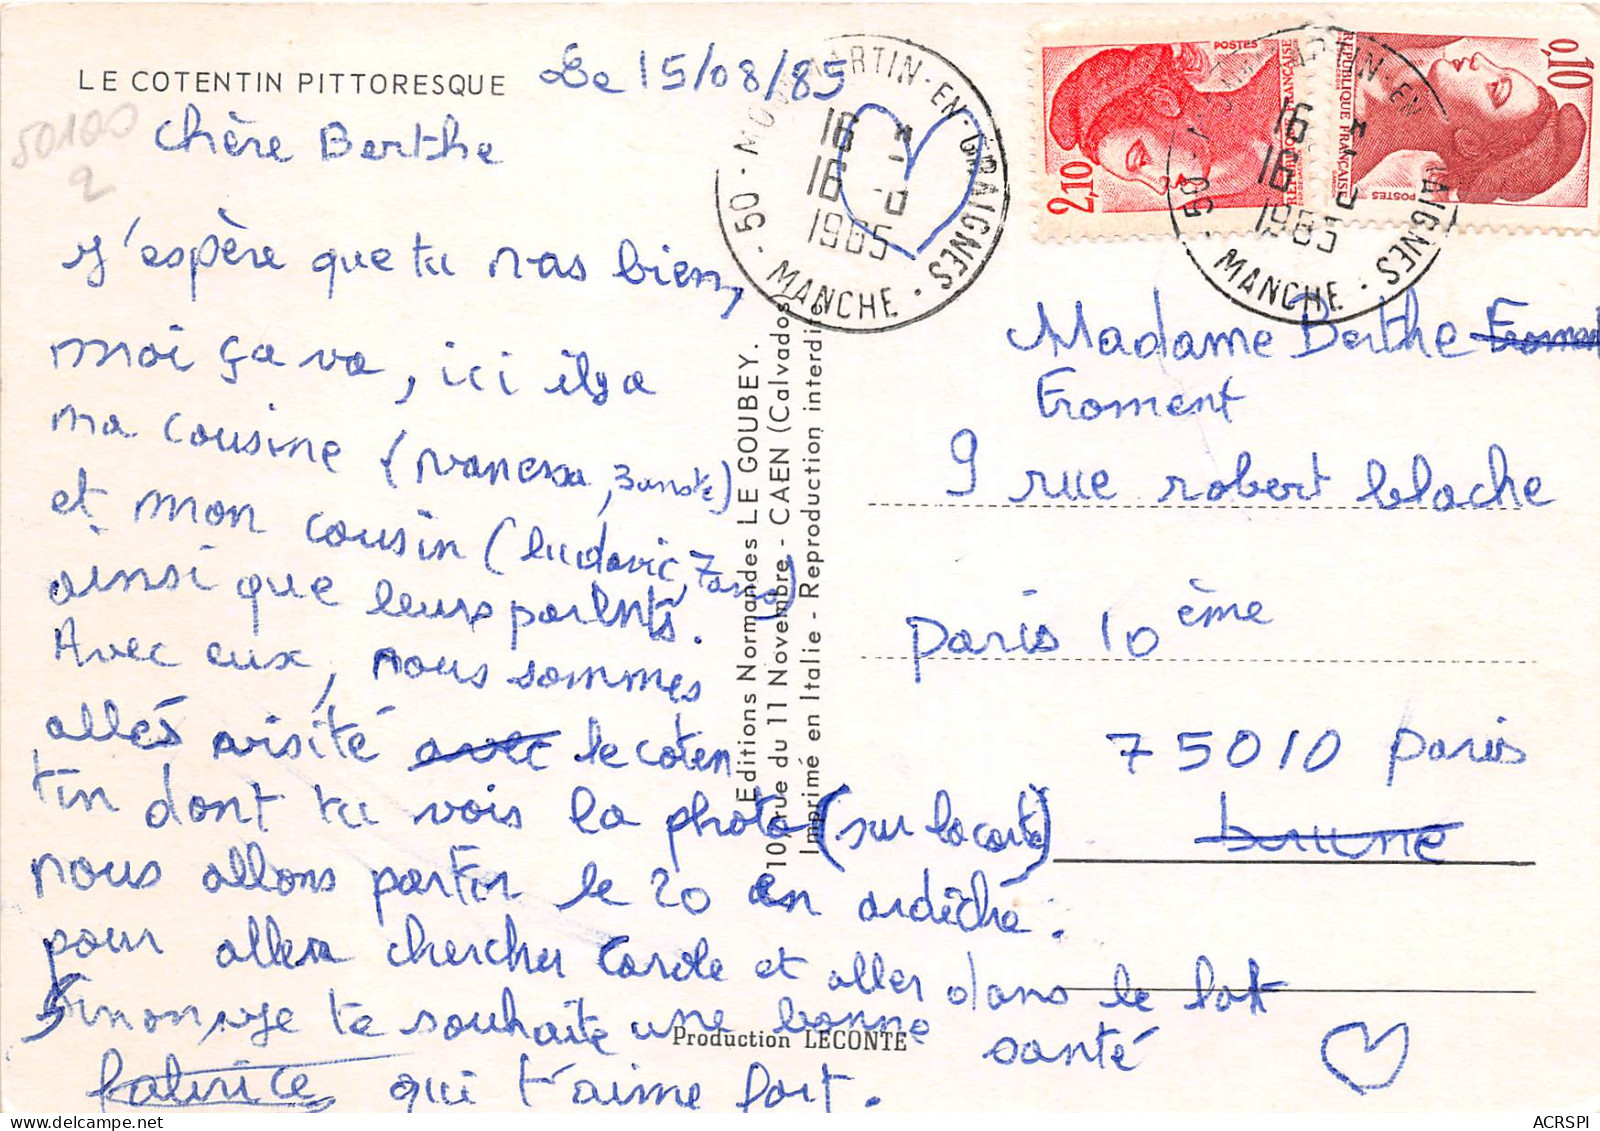 LE COTENTIN PITTORESQUE
Le 15/08/85
50100
2
chère Berthe
j'espère que tu vas bien,
moi ça va, ici il y a
ma cousine (vanessa, 3 ans ½)
et mon cousin (ludovic, 7 ans)
ainsi que leurs parents.
Avec eux, nous sommes
allés visité avec le coten
tin dont tu vois la photo (sur la carte)
nous allons partir le 20 en ardèche.
pour aller chercher Carole et aller dans le lot
Sinon, je te souhaite une bonne santé
fabrice qui t'aime fort.
Editions Normandes LE GOUBEY.
10, rue du 11 Novembre - CAEN (Calvados)
Imprimé en Italie - Reproduction interdite
Production LECONTE
50 - MONTMARTIN-EN-GRAIGNES
16 H
16 - 8
1985
MANCHE
POSTES
2,10
REPUBLIQUE FRANÇAISE
0,10
REPUBLIQUE FRANÇAISE
POSTES
50 - MONTMARTIN-EN-GRAIGNES
16 H
16 - 8
1985
MANCHE
Madame Berthe Froment
Froment
9 rue robert blache
paris 10 ème
75010 paris
brune
ACRSPI